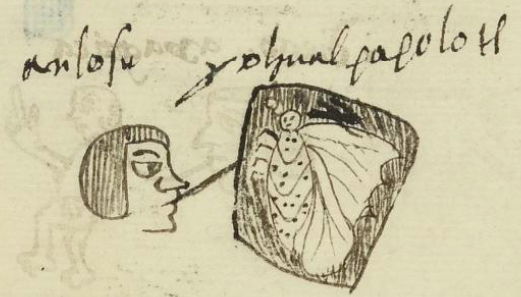 anlosu yohualpapalotl